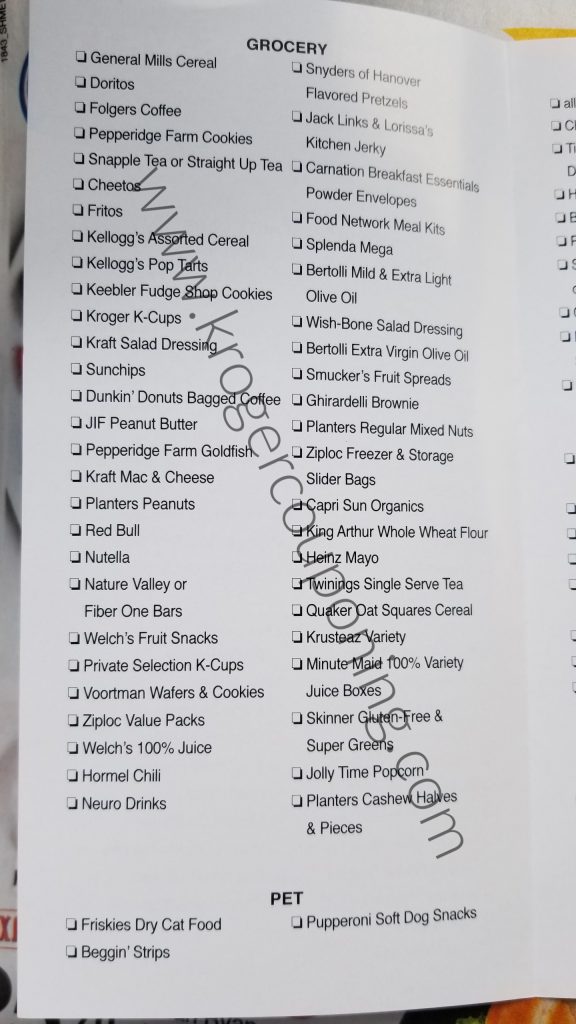 1843_SHME
GROCERY
❏ General Mills Cereal
❏ Doritos
❏ Folgers Coffee
❏ Pepperidge Farm Cookies
❏ Snapple Tea or Straight Up Tea
❏ Cheetos
❏ Fritos
❏ Kellogg's Assorted Cereal
❏ Kellogg's Pop Tarts
❏ Keebler Fudge Shop Cookies
❏ Kroger K-Cups
❏ Kraft Salad Dressing
❏ Sunchips
❏ Dunkin' Donuts Bagged Coffee
❏ JIF Peanut Butter
❏ Pepperidge Farm Goldfish
❏ Kraft Mac & Cheese
❏ Planters Peanuts
❏ Red Bull
❏ Nutella
❏ Nature Valley or
Fiber One Bars
❏ Welch's Fruit Snacks
❏ Private Selection K-Cups
❏ Voortman Wafers & Cookies
❏ Ziploc Value Packs
❏ Welch's 100% Juice
❏ Hormel Chili
❏ Neuro Drinks
❏ Snyders of Hanover
Flavored Pretzels
❏ Jack Links & Lorissa's
Kitchen Jerky
❏ Carnation Breakfast Essentials
Powder Envelopes
❏ Food Network Meal Kits
❏ Splenda Mega
❏ Bertolli Mild & Extra Light
Olive Oil
❏ Wish-Bone Salad Dressing
❏ Bertolli Extra Virgin Olive Oil
❏ Smucker's Fruit Spreads
❏ Ghirardelli Brownie
❏ Planters Regular Mixed Nuts
❏ Ziploc Freezer & Storage
Slider Bags
❏ Capri Sun Organics
❏ King Arthur Whole Wheat Flour
❏ Heinz Mayo
❏ Twinings Single Serve Tea
❏ Quaker Oat Squares Cereal
❏ Krusteaz Variety
❏ Minute Maid 100% Variety
Juice Boxes
❏ Skinner Gluten-Free &
Super Greens
❏ Jolly Time Popcorn
❏ Planters Cashew Halves
& Pieces
PET
❏ Friskies Dry Cat Food
❏ Beggin' Strips
❏ Pupperoni Soft Dog Snacks
www.krogercouponing.com